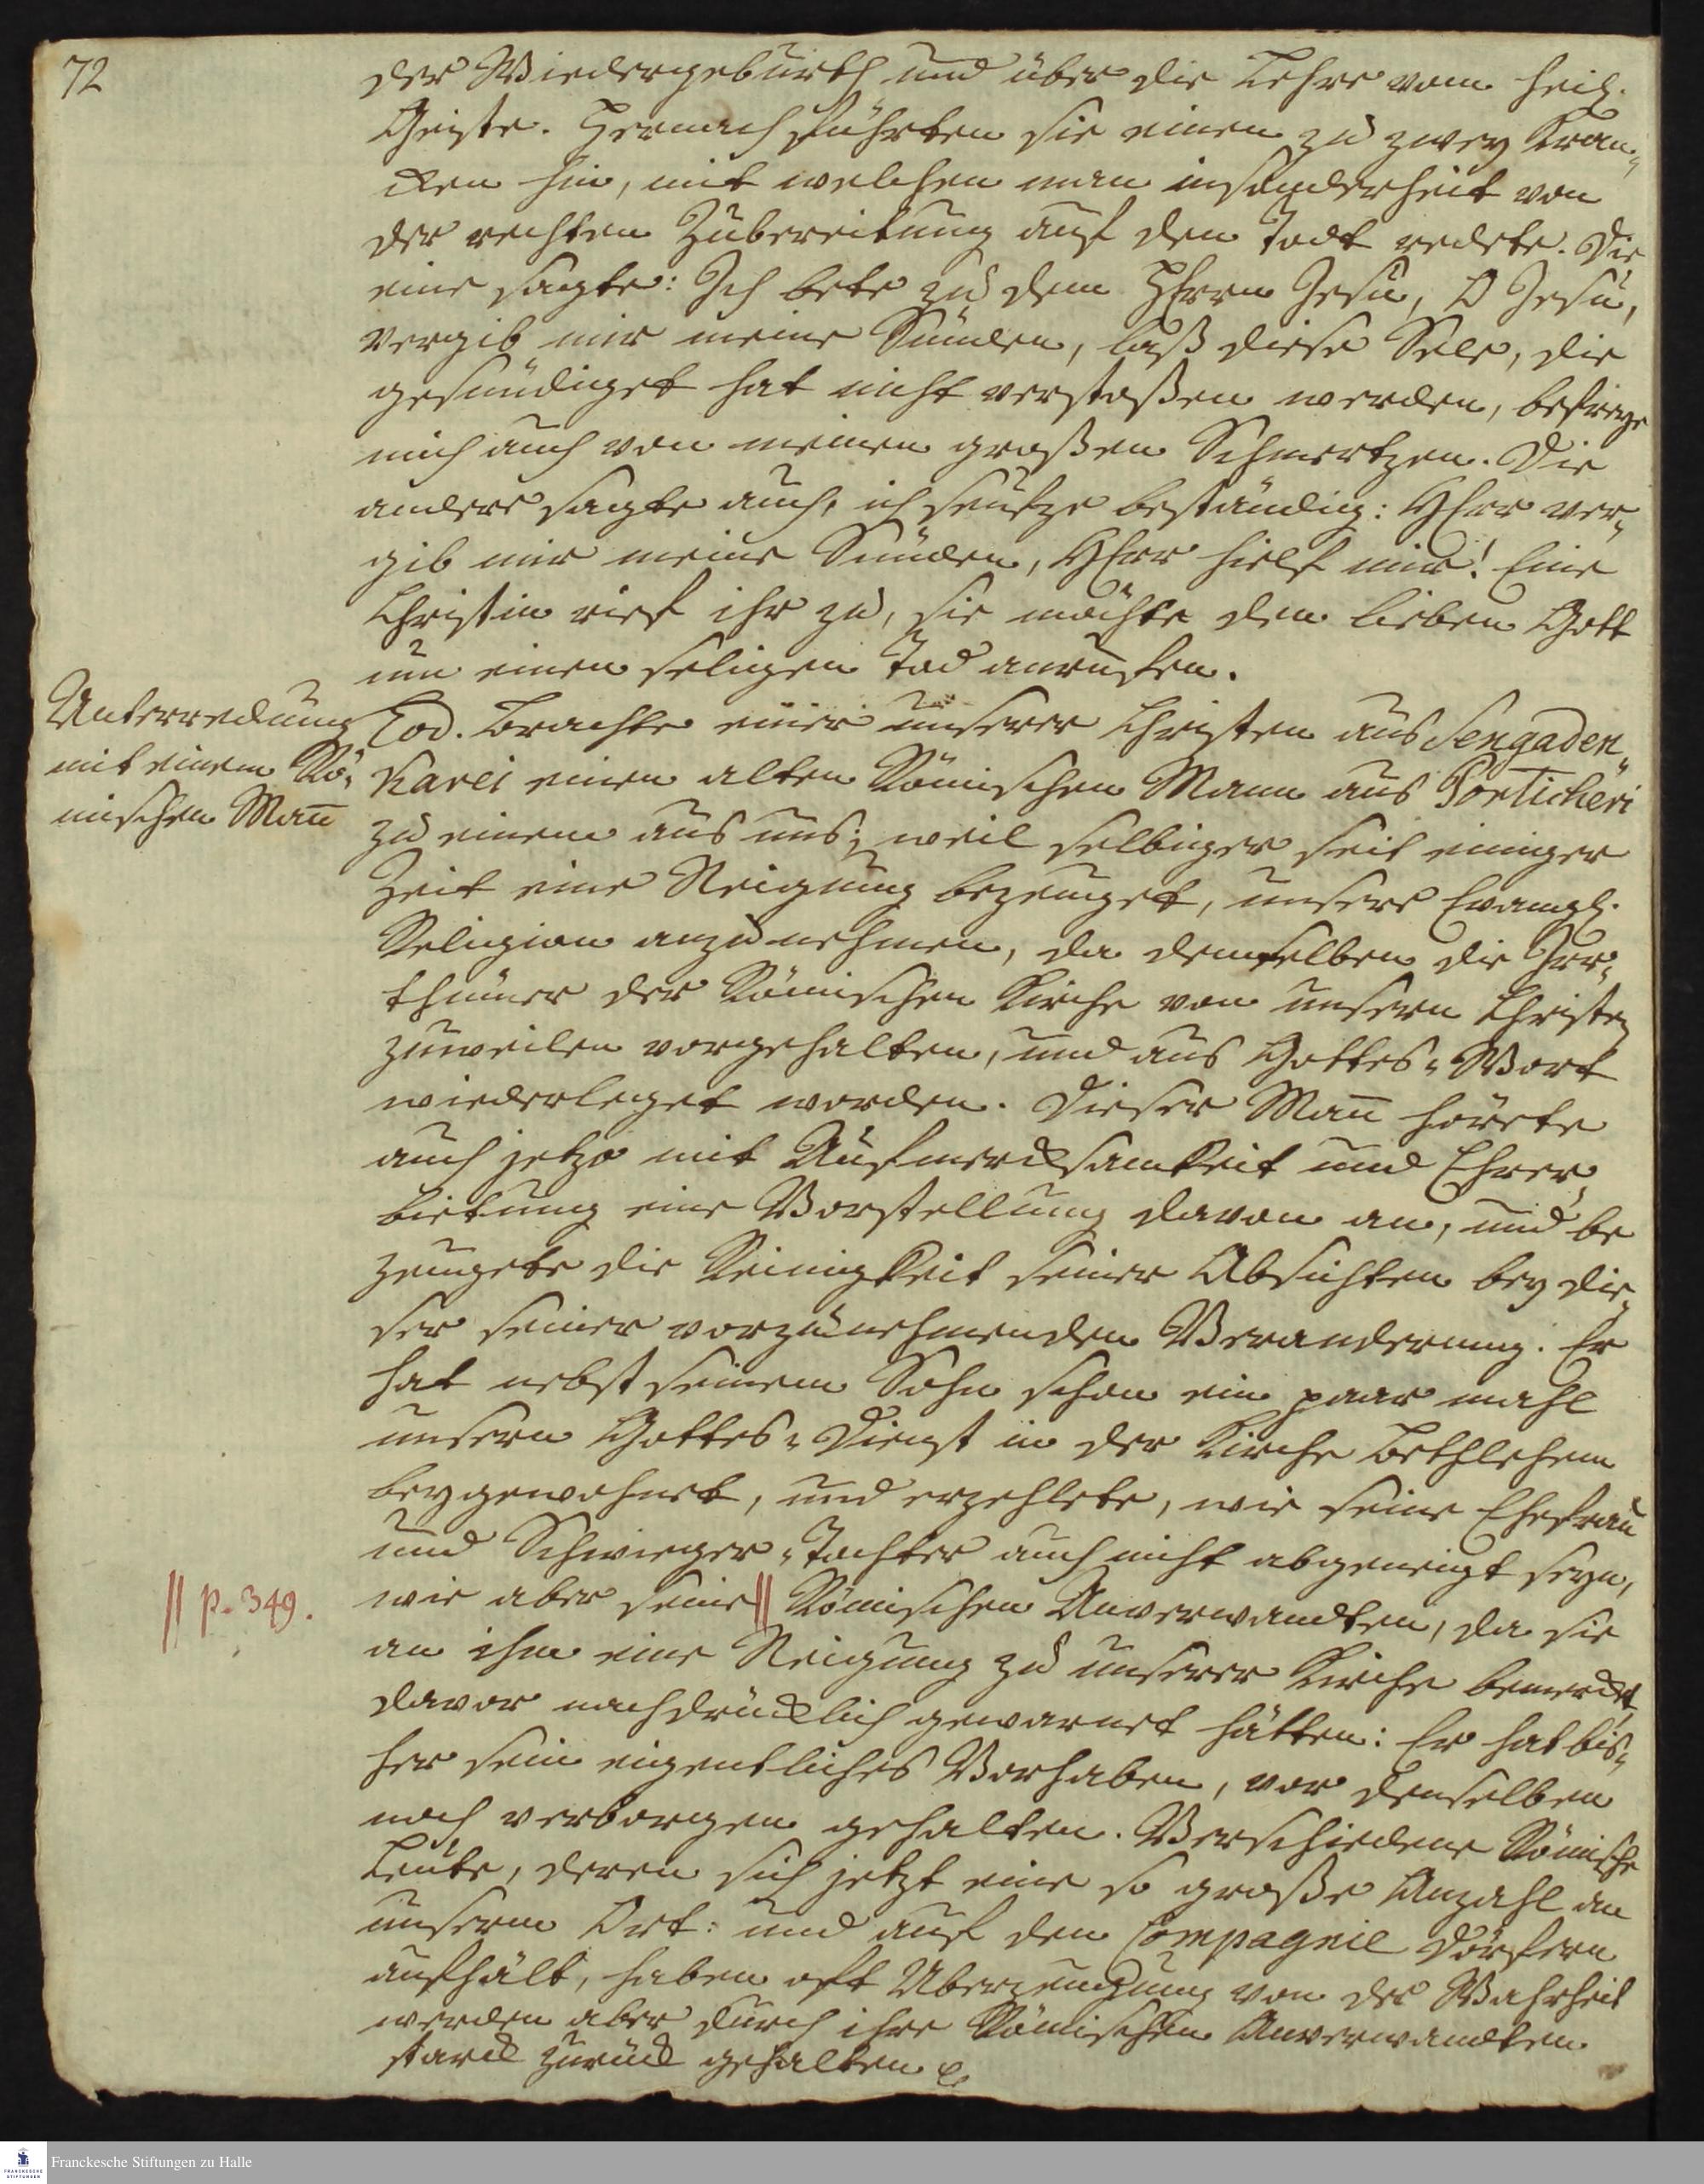 72
der Wiedergeburth und über die Lehre vom heil.
Geiste. Hernach führten sie einen zu zwey Kran-
cken hin, mit welchen man insonderheit von
der rechten Zubereitung auf den Todt redete. Die
eine sagte: Ich bete zu dem HErrn Jesu, O Jesu,
vergib mir meine Sünden, laß diese Sele, die
gesündiget hat nicht verstoßen werden, befreye
mich auch von meinen großen Schmertzen. Die
andere sagte auch, ich seufze beständig: HErr ver-
gib mir meine Sünden, HErr hielf mir! Eine
Christin rief ihr zu, sie möchte den lieben Gott
um einen seligen Tod anrufen.
Unterredung
mit einem Rö-
mischen Mañ
Eod. brachte einer unserer Christen aus Sengaden-
Karei einen alten Römischen Mann aus Poeticheri
zu einem aus uns; weil selbiger seit einiger
Zeit eine Neigung bezeuget, unsere Evangl.
Religion anzunehmen, da demselben die Irr-
thümer der Römischen Kirche von unsern Christen
zuweilen vorgehalten, und aus Gottes-Wort
wiederleget worden. Dieser Mañ hörete
auch jetzo mit Aufmercksamkeit und Ehrer-
bietung eine Vorstellung davon an, und be
zeugete die Reinigkeit seiner Absichten bey die-
ser seiner vorzunehmenden Veranderung. Er
hat nebst seinem Sohn schon ein paar mahl
unsern Gottes-Dienst in der Kirche Bethlehem
beygewohnet, und erzehlete, wie seine Ehefrau
und Schwieger-Tochter auch nicht abgeneigt seyn,
wie aber seine || Römischen Anverwandten, da sie
|| p. 349.
an ihm eine Neigung zu unserer Kirche bemerckt,
davor nachdrücklich gewarnet hätten: Er hat bis-
her sein eigentliches Vorhaben, vor denselben
noch verborgen gehalten. Verschiedene Römische
Leute, deren sich jetzt eine so große Anzahl an
unserm Ort: und auf den Compagnie Dörfern
aufhält, haben oft Uberzeugung von der Wahrheit
werden aber durch ihre Römischen Anverwandten
starck zurück gehalten.
Franckesche Stiftungen zu Halle